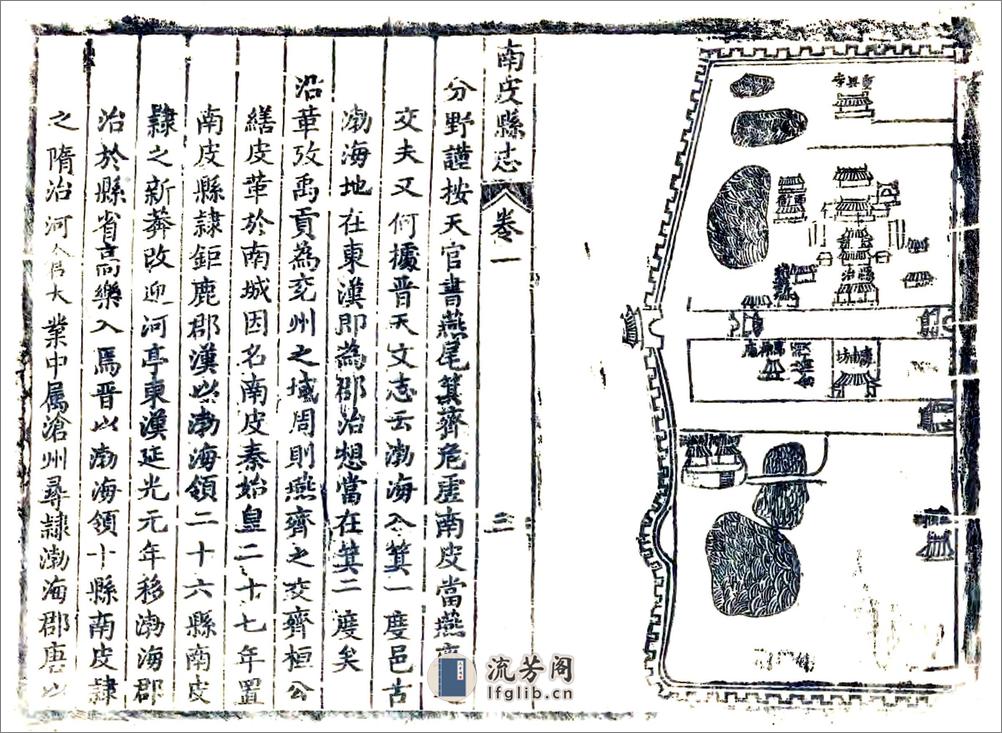 南皮縣志
卷一
三
分野謹按天官書燕尾箕齊危虛南皮當燕齊
交夫又何據晋天文志云渤海入箕一度邑古
渤海地在東漢即為郡治想當在箕二度矣
沿革攷禹貢為兗州之域周則燕齊之交齊桓公
繕皮革於南城因名南皮秦始皇二十七年置
南皮縣隷鉅鹿郡漢以渤海領二十六縣南皮
隷之新莽改迎河亭東漢延光元年移渤海郡
治於縣省高樂入焉晋以渤海領十縣南皮隷
之隋治河大業中属滄州尋隷渤海郡唐以
縣治
流芳阁
lfglib.cn